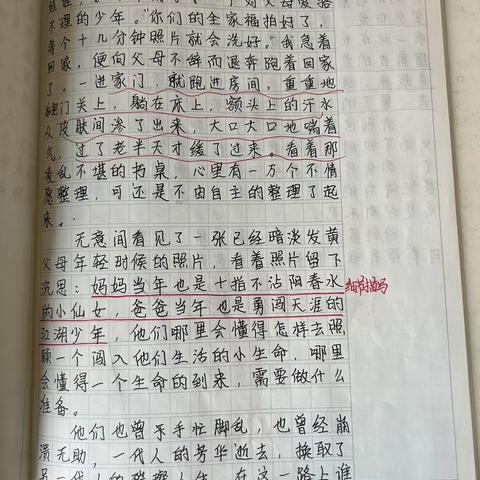 对父母爱搭
不理的少年。“你们的全家福拍好了,
等个十几分钟照片就会洗好。”我急着
回家,便向父母不辞而退奔跑着回家
了。一进家门,就跑进房间,重重地
把门关上,躺在床上,额头上的汗水
从皮肤间渗了出来,大口大口地喘着
气,过了老半天才缓了过来。看着那
凌乱不堪的书桌,心里有一万个不情
愿整理,可还是不由自主的整理了起
来。
无意间看见了一张已经暗淡发黄
父母年轻时候的照片,看着照片留下
沉思:妈妈当年也是十指不沾阳春水
的小仙女,爸爸当年也是勇闯天涯的
江湖少年,他们哪里会懂得怎样去照
顾一个闯入他们生活的小生命,哪里
会懂得一个生命的到来,需要做什么
准备。
他们也曾手手忙脚乱,也曾经崩
溃无助,一代人的芳华逝去,换取了
另一代人的璀璨人生,在这一路上谁